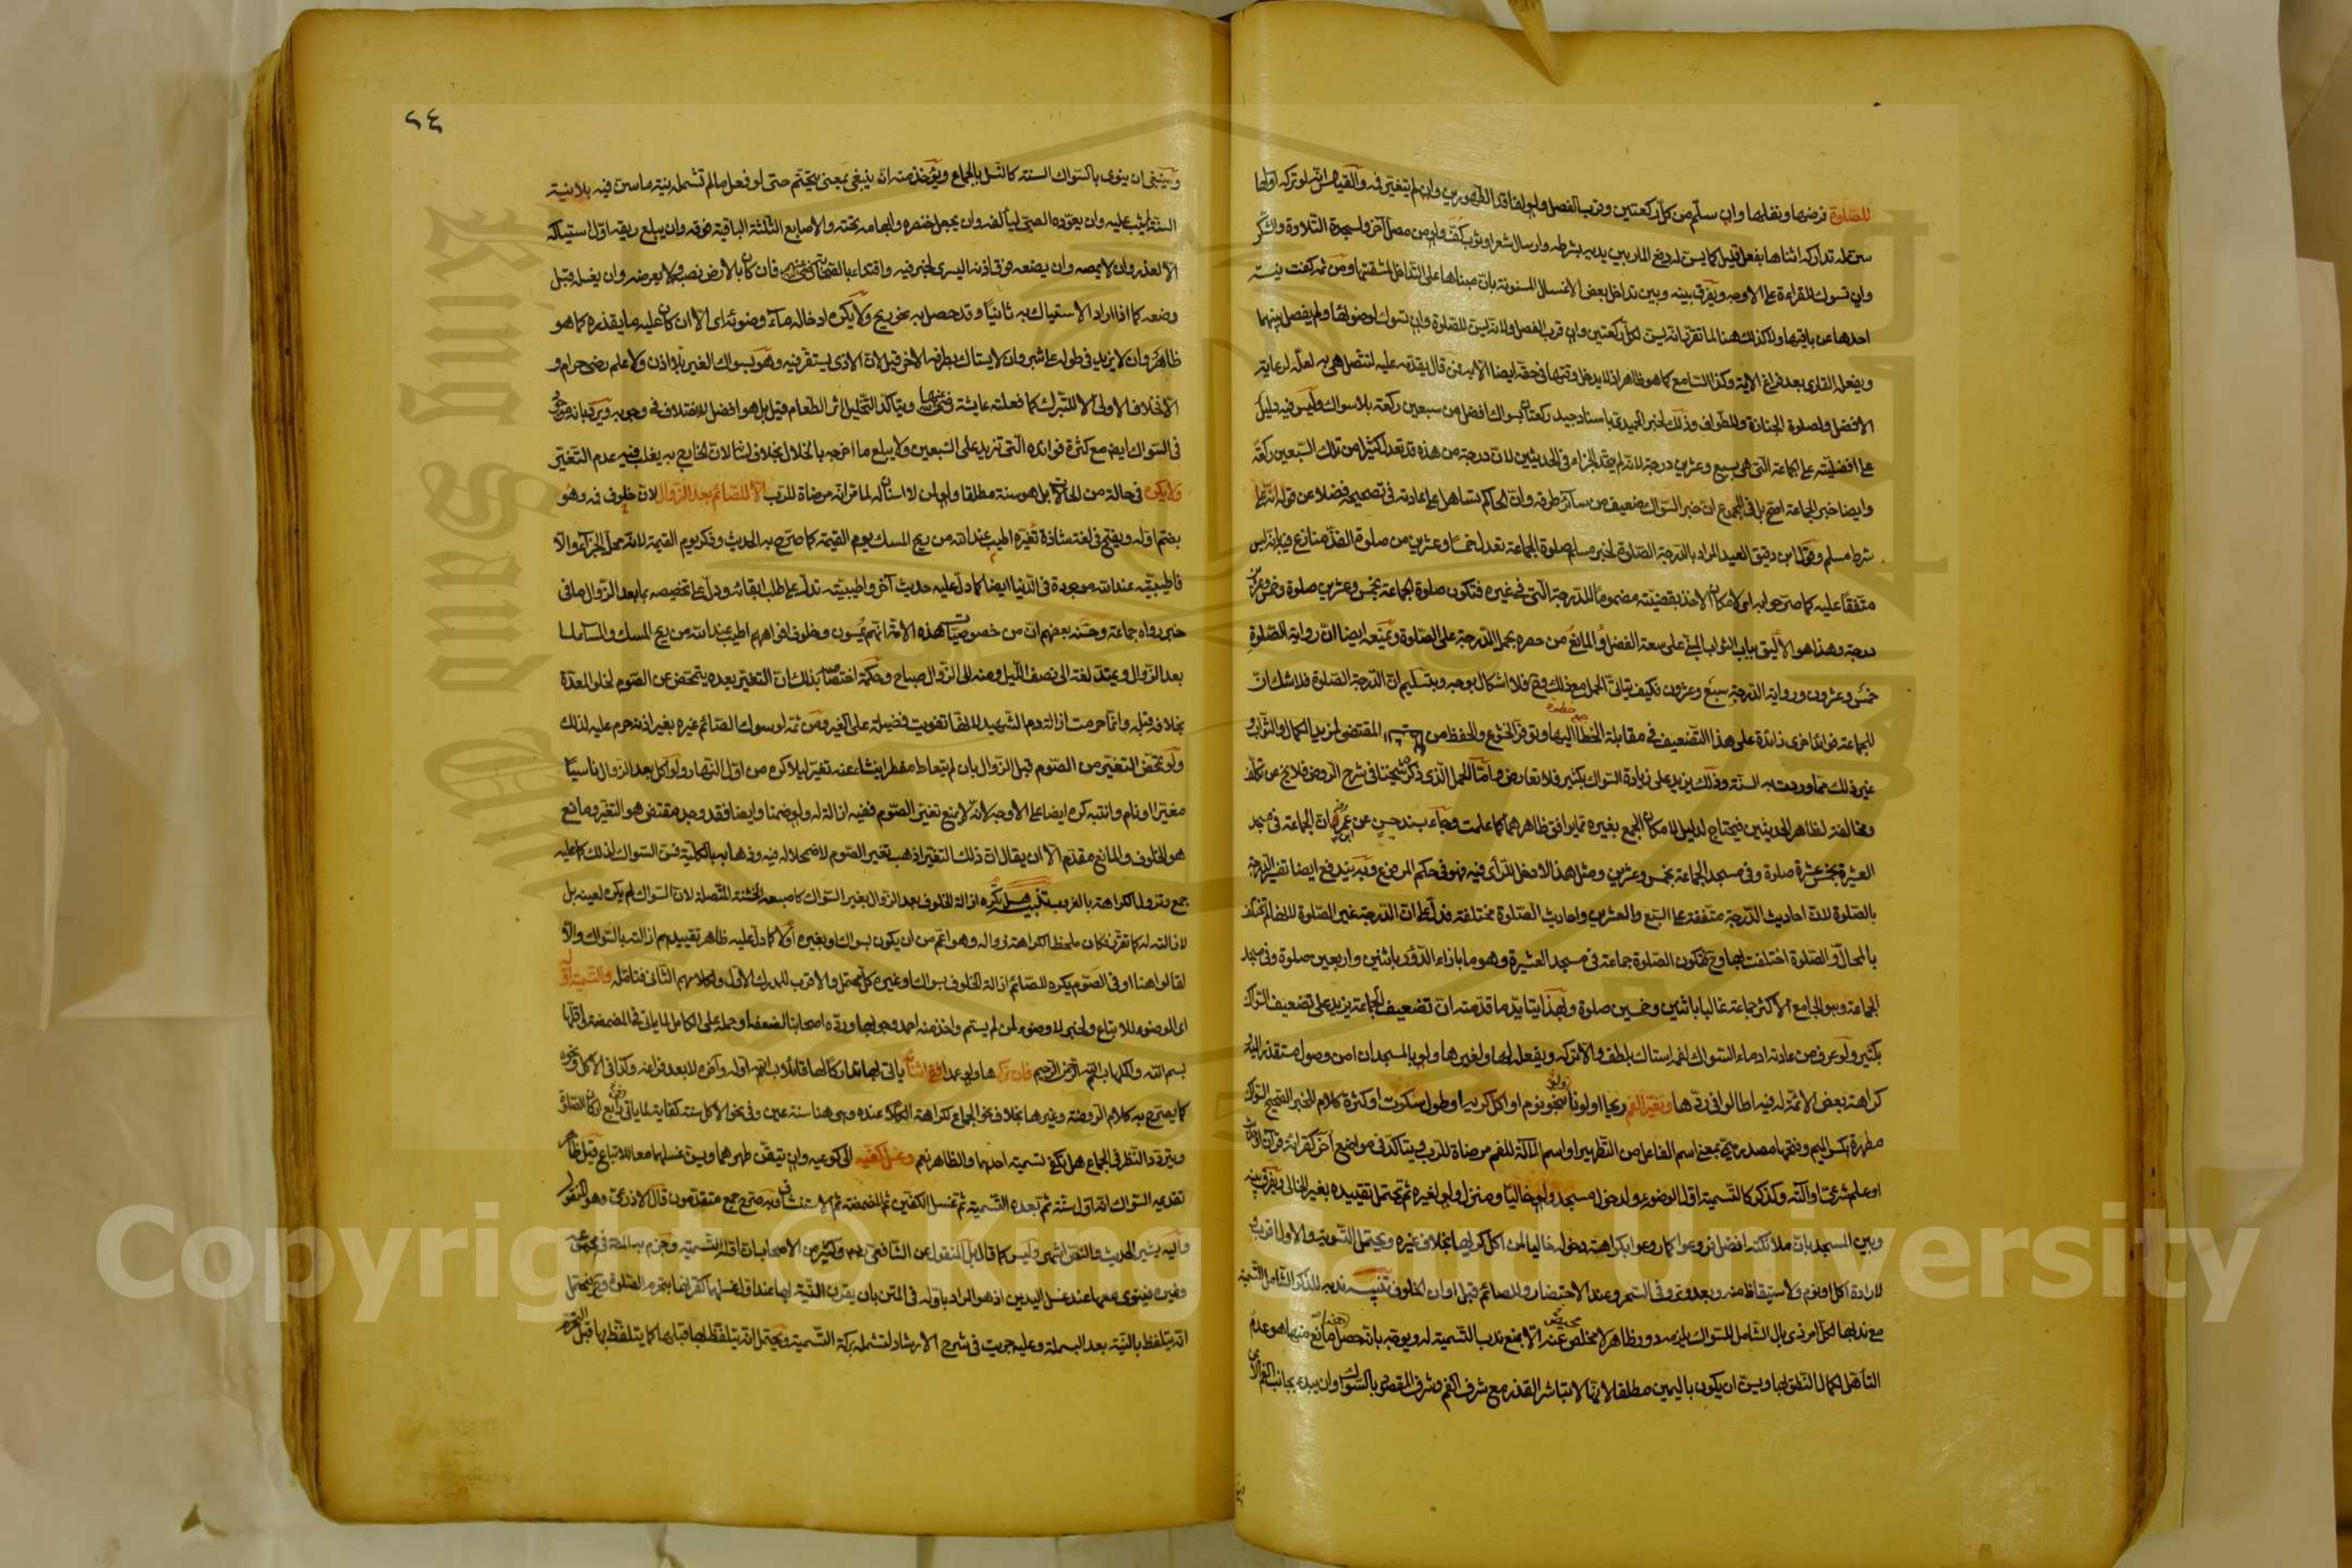 للصلوة فرضها ونفلها وان سلم من كل ركعتين وقرب الفصل ولو لفاقد الطهورين وان لم يتغير فمه والقياس انه لو تركه اولها
سن له تداركه اثناءها بفعل قليل كما يسن له دفع المار بين يديه بشرطه وارسال شعر او ثوب كف ولو من مصل آخر ولسجدة التلاوة والشكر
وان تسوك للقراءة على الاوجه ويفرق بينه وبين تداخل بعض الاغسال المسنونة بان مبناها على التداخل لمشقتها ومن ثم كفت نية
احدها عن باقيها ولا كذلك هنا لما تقرر انه يسن لكل ركعتين وان قرب الفصل ولانه يسن للصلوة وان تسوك لوضوئها ولم يفصل بينهما
ويفعله القارى بعد فراغ الآية وكذا السامع كما هو ظاهر اذ لا يدخل وقتها في حقه ايضا الا به فمن قال يقدمه عليه لتتصل هي به لعله لرعاية
الافضل ولصلوة الجنازة وللطواف وذلك لخبر الحميدى باسناد جيد ركعتان بسواك افضل من سبعين ركعة بلا سواك وليس فيه دليل
على افضليته على الجماعة التي هي بسبع وعشرين درجة لانه لم يتحد الجزاء في الحديثين لان درجة من هذه قد تعدل كثيرا من تلك السبعين ركعة
وايضا خبر الجماعة اصح بل في المجموع ان خبر السواك ضعيف من سائر طرقه وان الحاكم تساهل على عادته في تصحيحه فضلا عن قوله انه على
شرط مسلم وقول ابن دقيق العيد المراد بالدرجة الصلوة لخبر مسلم صلوة الجماعة تعدل خمسا وعشرين من صلوة الفذ منازع فيه بانه ليس
متفقا عليه كما صرحوا به اى لامكان الاخذ بقضيته مضموما للدرجة التي في غيره فتكون صلوة الجماعة بخمس وعشرين صلوة وخمس وعشرين
درجة وهذا هو الاليق بباب الثواب المبني على سعة الفضل والمانع من حصره بحمل الدرجة على الصلوة ويمنعه ايضا ان رواية الصلوة
خمس وعشرون ورواية الدرجة سبع وعشرون فكيف يتأتى الحمل مع ذلك وح فلا اشكال بوجه وبتسليم ان الدرجة الصلوة فلا شك ان
للجماعة فوائد اخرى زائدة على هذا التضعيف في مقابلة الخطا اليها وتوفر الخشوع والحفظ من المقتضى لمزيد الكمال والثواب و
غير ذلك مما وردت به السنة وذلك يزيد على زيادة السواك بكثير فلا تعارض واما الحمل الذى ذكره شيخنا في شرح الروض فلا يخ عن تكلف
ومخالفة لظاهر الحديثين فيحتاج لدليل لامكان الجمع بغيره مما يوافق ظاهرهما كما علمت وجاء بسند حسن عن ان الجماعة في مسجد
العشيرة بخمس عشرة صلوة وفي مسجد الجماعة بخمس وعشرين ومثل هذا لا دخل للرأى فيه فهو في حكم المرفوع وبه يندفع ايضا تفسير الدرجة
بالصلوة لان احاديث الدرجة متفقة على السبع والعشرين واحاديث الصلوة مختلفة فدل على ان الدرجة غير الصلوة لانها لم تختلف
بالمحال والصلوة اختلفت بها وح فتكون الصلوة جماعة في مسجد العشيرة وهو ما بازاء الدور باثنين واربعين صلوة وفي مسجد
الجماعة وهو الجامع الاكثر جماعة غالبا باثنين وخمسين صلوة وبهذا يتايد ما قدمته ان تضعيف الجماعة يزيد على تضعيف السواك
بكثير ولو عرف من عادته ادماء السواك لفمه استاك بلطف والا تركه ويفعله لها ولغيرها ولو بالمسجد ان امن وصول مستقذر اليه
كراهة بعض الائمة له فيه اطالوا في ردها وتغير الفم ريحا او لونا بنحو نوم او اكل كريه او طول سكوت او كثرة كلام للخبر الصحيح السواك
مطهرة بكسر الميم وفتحها مصدر ميمي بمعنى اسم الفاعل من التطهير او اسم للآلة للفم مرضاة للرب ويتأكد في مواضع أخر كقراءة قرآن او حديث
او علم شرعي او آلته وكذكر كالتسمية اول الوضوء ولدخول مسجد ولو خاليا ومنزل ولو لغيره ثم يحتمل تقييده بغير الخالى ويفرق بينه
وبين المسجد بان ملائكته افضل فروعوا كما روعوا بكراهة دخوله خاليا لمن اكل كريها بخلاف غيره ويحتمل التسوية والاول اقرب و
لارادة اكل او نوم ولاستيقاظ منه وبعد وتر وفي السحر وعند الاحتضار وللصائم قبل اوان الخلوف تنبيه ندبه للذكر الشامل للتسمية
مع ندبها لكل امر ذى بال الشامل للسواك يلزمه دور ظاهر لا مخلص عنه الا بمنع ندب التسمية له ويوجه بانه حصل هنا مانع منها هو عدم
التاهل لكمال النطق بها ويسن ان يكون باليمين مطلقا لانها لا تباشر القذر مع شرف الفم وشرف المقصود بالسواك وان يبدء بجانب الفم الايمن
٢٤
وينبغي ان ينوى بالسواك السنة كالنسل بالجماع ويؤخذ منه ان ينبغي بمعنى يتحتم حتى لو فعل ما لم تشمله نية ما سن فيه بلا نية
السنة لم يثب عليه وان يعوده الصبي ليألفه وان يجعل خنصره وابهامه تحته والاصابع الثلثة الباقية فوقه وان يبلع ريقه اول استياكه
الا لعذر وان لا يمصه وان يضعه فوق اذنه اليسرى لخبر فيه واقتداء بالصحابة فان كان بالارض نصبه ولا يعرضه وان يغسله قبل
وضعه كما اذا اراد الاستياك به ثانيا وقد حصل به نحو ريح ولا يكره ادخاله ماء وضوئه اى الا ان كان عليه ما يقذره كما هو
ظاهر وان لا يزيد في طوله على شبر وان لا يستاك بطرفه الاخر قيل لان الاذى يستقر فيه وهو بسواك الغير بلا اذن ولا علم رضى حرام و
الا خلاف الاولى الا للتبرك كما فعلته عايشة ويتأكد التخليل اثر الطعام قيل بل هو افضل للاختلاف في وجوبه ويرد بانه موجود
في السواك ايضا مع كثرة فوائده التي تزيد على السبعين ولا يبلع ما اخرجه بالخلال بخلاف لسانه لان الخارج به يغلب فيه عدم التغير
ولا يكره في حالة من الحالات بل هو سنة مطلقا ولو لمن لا اسنان له لما مر انه مرضاة للرب الا للصائم بعد الزوال لان خلوف فمه وهو
بضم اوله ويفتح في لغة شاذة تغيره اطيب عند الله من ريح المسك يوم القيمة كما صرح به الحديث وذكر يوم القيمة لانه محل الجزاء والا
فاطيبيته عند الله موجودة في الدنيا ايضا كما دل عليه حديث آخر واطيبيته تدل على طلب ابقائه ودل على تخصيصه بما بعد الزوال ما في
خبر رواه جماعة وحسنه بعضهم ان من خصوصيات هذه الامة انهم يمسون وخلوف افواههم اطيب عند الله من ريح المسك والمساء ما
بعد الزوال ويمتد لغة الى نصف الليل ومنه الى الزوال صباح وحكمة اختصاصه بذلك ان التغير بعده يتمحض عن الصوم لخلو المعدة
بخلافه قبله وانما حرمت ازالة دم الشهيد لانها تفويت فضيلة على الغير ومن ثم لو سوك الصائم غيره بغير اذنه حرم عليه لذلك
ولو تمحض التغير من الصوم قبل الزوال بان لم يتعاط مفطرا ينشاء عنه تغير ليلا كره من اول النهار ولو اكل بعد الزوال ناسيا
مغيرا او نام وانتبه كره ايضا على الاوجه لانه لا يمنع تغير الصوم ففيه ازالة له ولو ضمنا وايضا فقد وجد مقتض هو التغير ومانع
هو الخلوف والمانع مقدم الا ان يقال ان ذلك التغير اذهب تغير الصوم لاضمحلاله فيه وذهابه بالكلية فسن السواك لذلك كما عليه
جمع وتزول الكراهة بالغروب تنبيه هل تكره ازالة الخلوف بعد الزوال بغير السواك كاصبعه الخشنة المتصلة لان السواك لم يكره لعينه بل
لازالته له كما تقرر فكان ملحظ الكراهة زواله وهو اعم من ان يكون بسواك او بغيره أولا كما دل عليه ظاهر تقييدهم ازالته بالسواك والا
لقالوا هنا او في الصوم يكره للصائم ازالة الخلوف بسواك او غيره كل محتمل والاقرب للمدرك الاول ولكلامهم الثاني فتامله والتسمية اوله
اى الوضوء للاتباع ولخبر لا وضوء لمن لم يسم واخذ منه احمد وجوبها ورده اصحابنا لضعفه او حمله على الكامل لما ياتي في المضمضة واقلها
بسم الله واكملها بسم الله الرحمن الرحيم فان تركها ولو عمدا ففي اثنائه ياتي بها تداركا لها قائلا بسم الله اوله وآخره لا بعد فراغه وكذا في الاكل ونحوه
كما يصرح به كلام الروضة وغيرها بخلاف نحو الجماع لكراهة الكلام عنده وهي هنا سنة عين وفي نحو الاكل سنة كفاية لما ياتي رابع اركان الصلوة
ويتردد النظر في الجماع هل تكفي تسمية احدهما والظاهر نعم وغسل كفيه الى كوعيه وان تيقن طهرهما ويسن غسلهما معا للاتباع قيل ظاهر
تقديمه السواك انه اول سننه ثم بعده التسمية ثم غسل الكفين ثم المضمضة ثم الاستنشاق وبه صرح جمع متقدمون قال الاذرعي وهو المنقول
واليه يشير الحديث والنص انتهى وليس كما قال بل المنقول عن الشافعي وكثير من الاصحاب ان اوله التسمية وجزم به المص في مجموعه
وغيره فينوى معها عند غسل اليدين اذ هو المراد باوله في المتن بان يقرن النية بها عند اول غسلهما كقرنها بتحرم الصلوة وح يحتمل
انه يتلفظ بالنية بعد البسملة وعليه جريت في شرح الارشاد لتشمله بركة التسمية ويحتمل انه يتلفظ بها قبلها كما يتلفظ بها قبل التحرم
Copyright © King Saud University